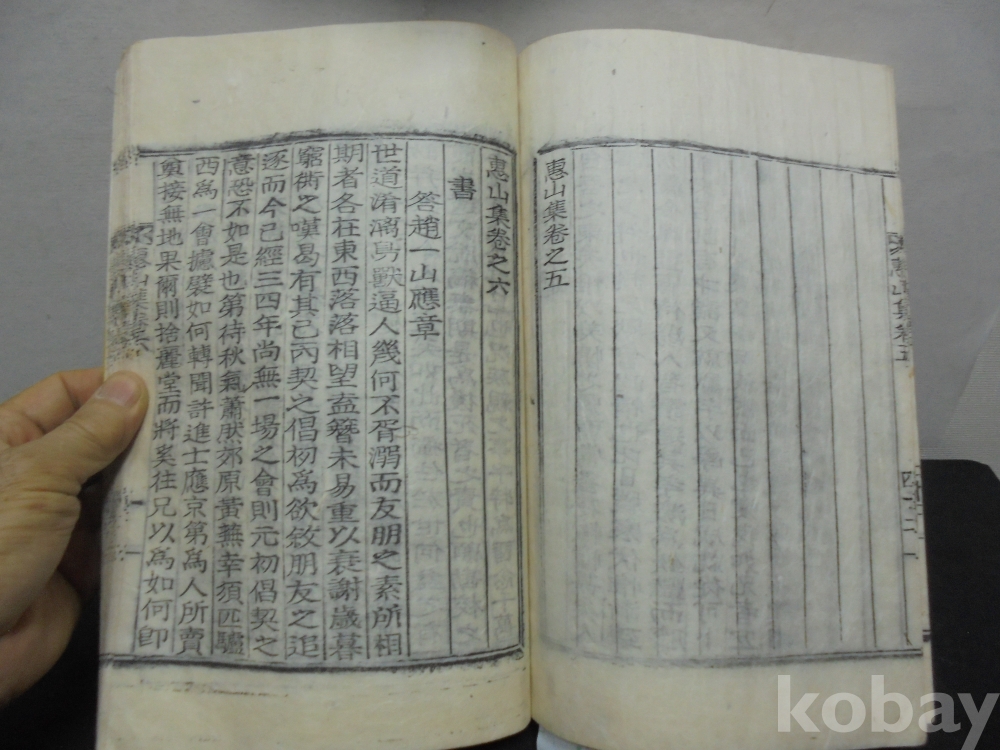 惠山集卷之五
惠山集卷之六
書
答趙一山應章
世道淆漓鳥獸逼人幾何不胥溺而友朋之素所相
期者各在東西落落相望盍簪未易重以衰謝歲暮
窮衖之嘆曷有其已丙契之倡初爲欲敘朋友之追
逐而今已經三四年尚無一場之會則元初倡契之
意恐不如是也第待秋氣蕭厌郊原黃蕪幸須匹驢
西爲一會攄襞如何轉聞許進士應京第爲人所賣
奠接無地果爾則捨麗堂而將奚往兄以爲如何卽
惠山集卷五
四十二
kobay